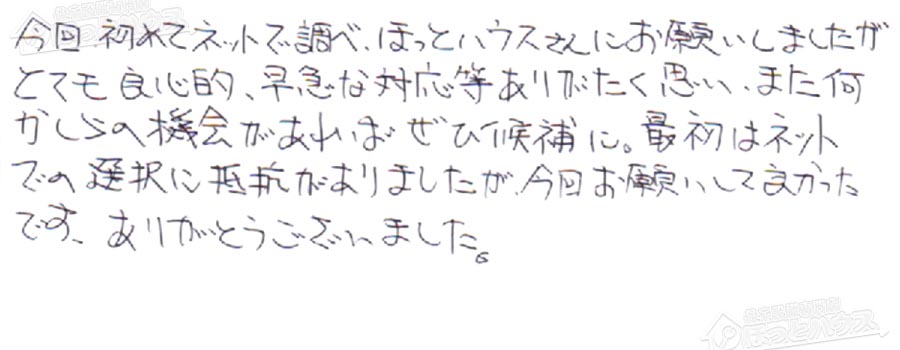 今回初めてネットで調べ、ほっとハウスさんにお願いしましたが
とても良心的、早急な対応等ありがたく思い、また何
かしらの機会があればぜひ候補に。最初はネット
での選択に抵抗がありましたが、今回お願いして良かった
です、ありがとうございました。
ほっとハウス